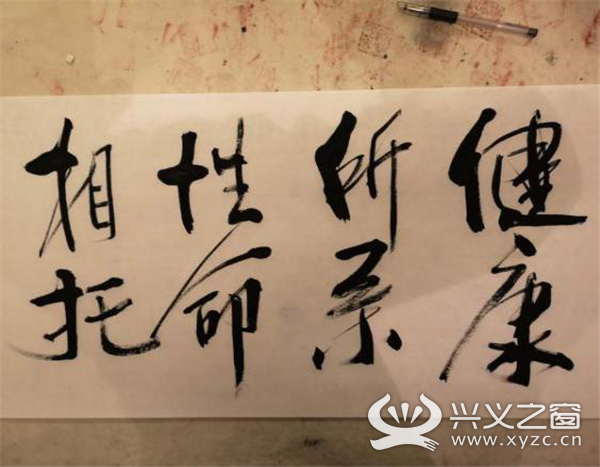 健康
所系
性命
相托
兴义之窗
www.xyzc.cn